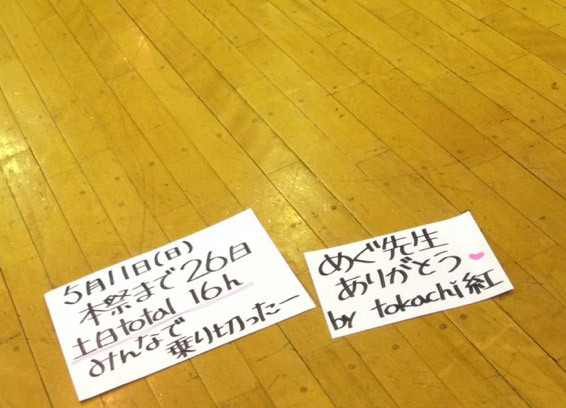 5月11日(日)
本祭まで26日
土日total 16h
みんなで
乗り切ったー
めぐ先生
ありがとう
by tokachi紅